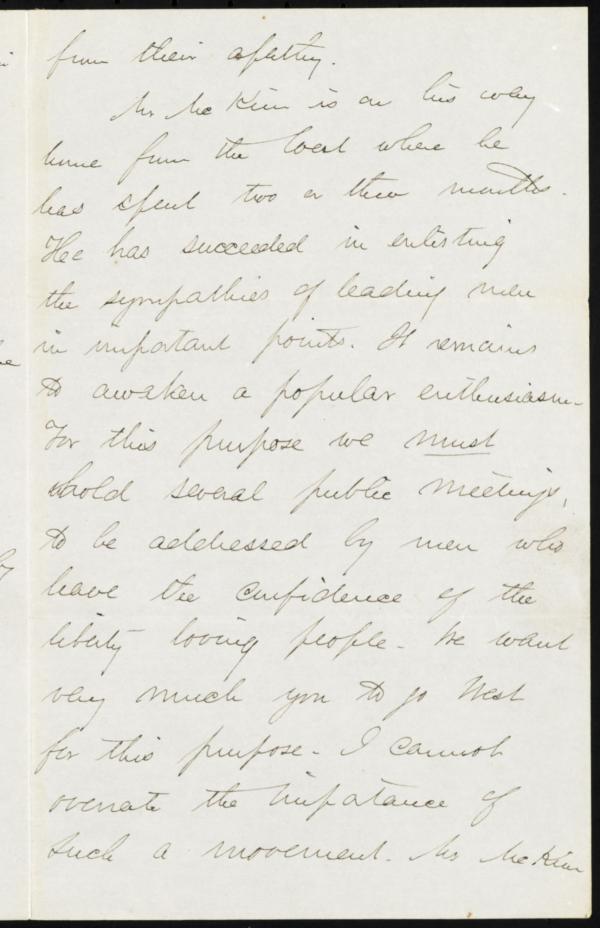 from their apathy.
Mr McKim is on his way
home from the West where he
has spent two or three months.
He has succeeded in enlisting
the sympathies of leading men
in important points. It remains
to awaken a popular enthusiasm -
For this purpose we must
hold several public meetings,
to be addressed by men who
have the confidence of the
liberty loving people - We want
very much you to go West
for this purpose - I cannot
overrate the importance of
such a movement. Mr McKim